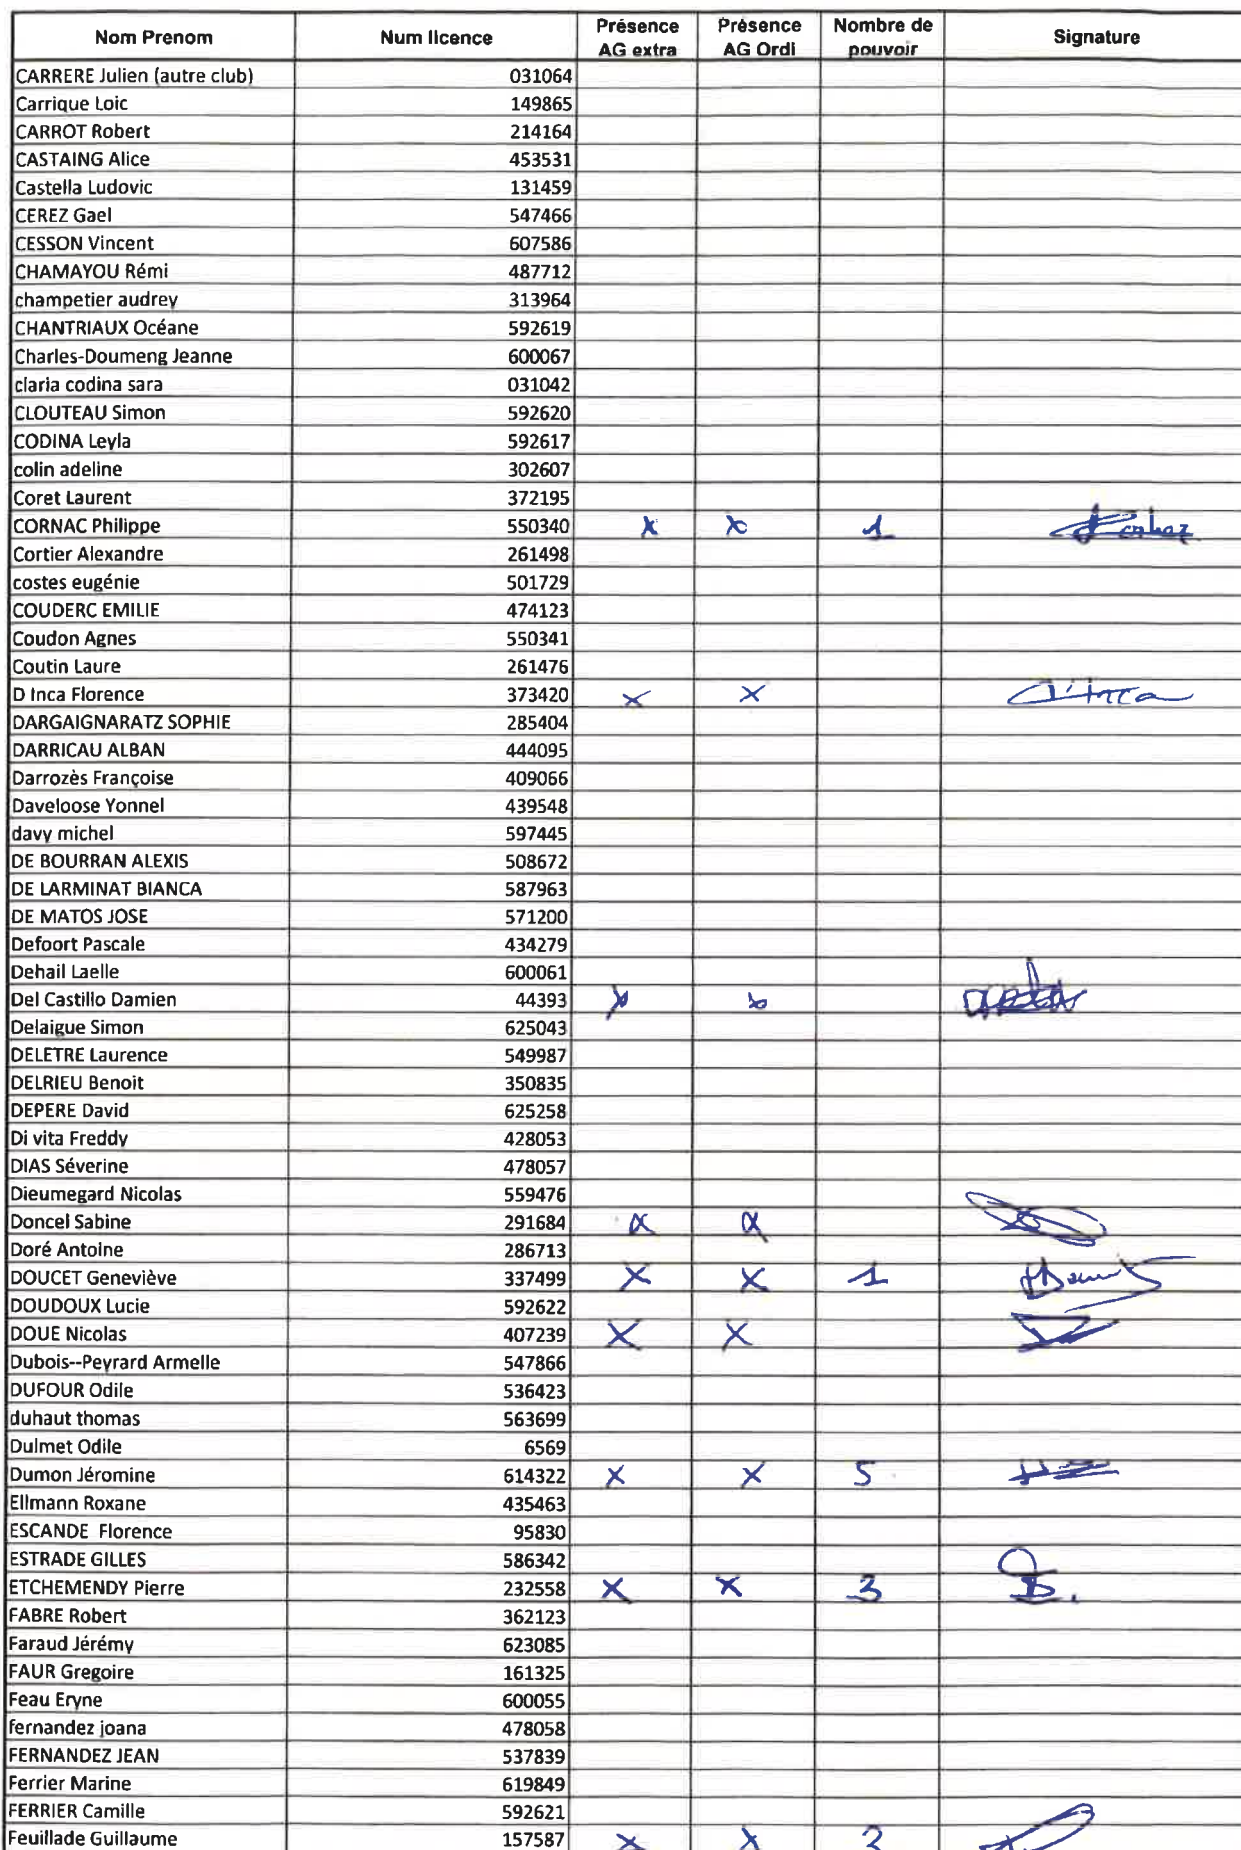 Nom Prenom Num licence Présence AG extra Présence AG Ordi Nombre de pouvoir Signature
CARRERE Julien (autre club) 031064
Carrique Loic 149865
CARROT Robert 214164
CASTAING Alice 453531
Castella Ludovic 131459
CEREZ Gael 547466
CESSON Vincent 607586
CHAMAYOU Rémi 487712
champetier audrey 313964
CHANTRIAUX Océane 592619
Charles-Doumeng Jeanne 600067
claria codina sara 031042
CLOUTEAU Simon 592620
CODINA Leyla 592617
colin adeline 302607
Coret Laurent 372195
CORNAC Philippe 550340 x x 1
Cortier Alexandre 261498
costes eugénie 501729
COUDERC EMILIE 474123
Coudon Agnes 550341
Coutin Laure 261476
D Inca Florence 373420 x x D'Inca
DARGAIGNARATZ SOPHIE 285404
DARRICAU ALBAN 444095
Darrozès Françoise 409066
Daveloose Yonnel 439548
davy michel 597445
DE BOURRAN ALEXIS 508672
DE LARMINAT BIANCA 587963
DE MATOS JOSE 571200
Defoort Pascale 434279
Dehail Laelle 600061
Del Castillo Damien 44393 x x
Delaigue Simon 625043
DELETRE Laurence 549987
DELRIEU Benoit 350835
DEPERE David 625258
Di vita Freddy 428053
DIAS Séverine 478057
Dieumegard Nicolas 559476
Doncel Sabine 291684 x x
Doré Antoine 286713
DOUCET Geneviève 337499 x x 1
DOUDOUX Lucie 592622
DOUE Nicolas 407239 x x
Dubois--Peyrard Armelle 547866
DUFOUR Odile 536423
duhaut thomas 563699
Dulmet Odile 6569
Dumon Jéromine 614322 x x 5
Ellmann Roxane 435463
ESCANDE Florence 95830
ESTRADE GILLES 586342
ETCHEMENDY Pierre 232558 x x 3
FABRE Robert 362123
Faraud Jérémy 623085
FAUR Gregoire 161325
Feau Eryne 600055
fernandez joana 478058
FERNANDEZ JEAN 537839
Ferrier Marine 619849
FERRIER Camille 592621
Feuillade Guillaume 157587 x x